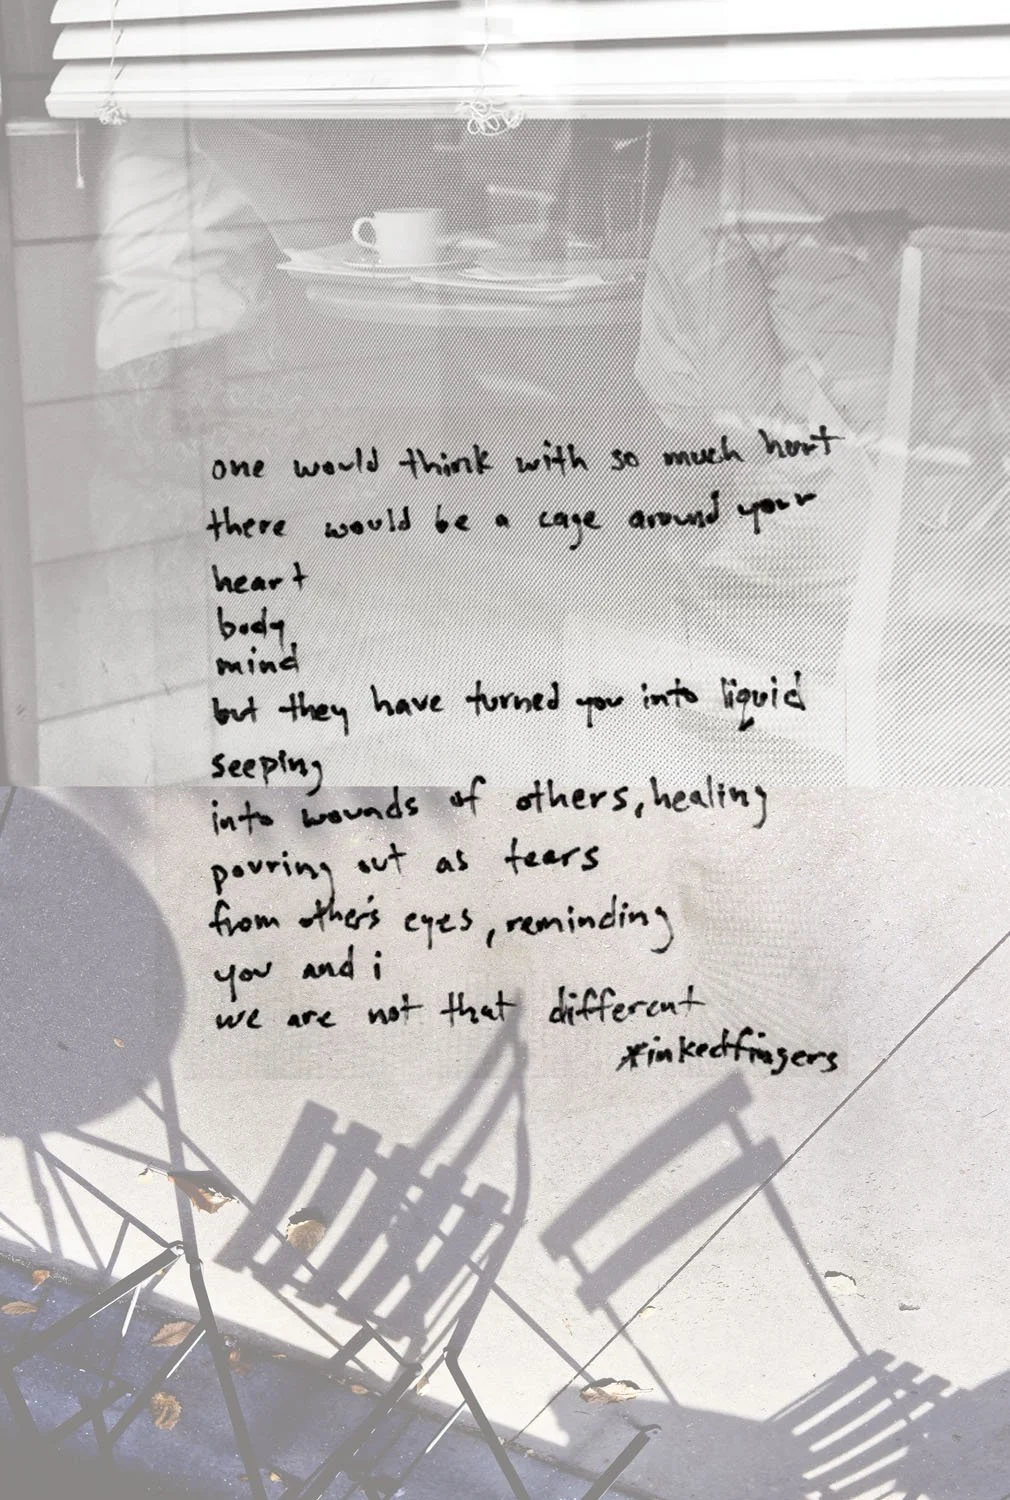 one would think with so much hurt
there would be a cage around your
heart
body
mind
but they have turned you into liquid
seeping
into wounds of others, healing
pouring out as tears
from other's eyes, reminding
you and i
we are not that different
*inkedfingers